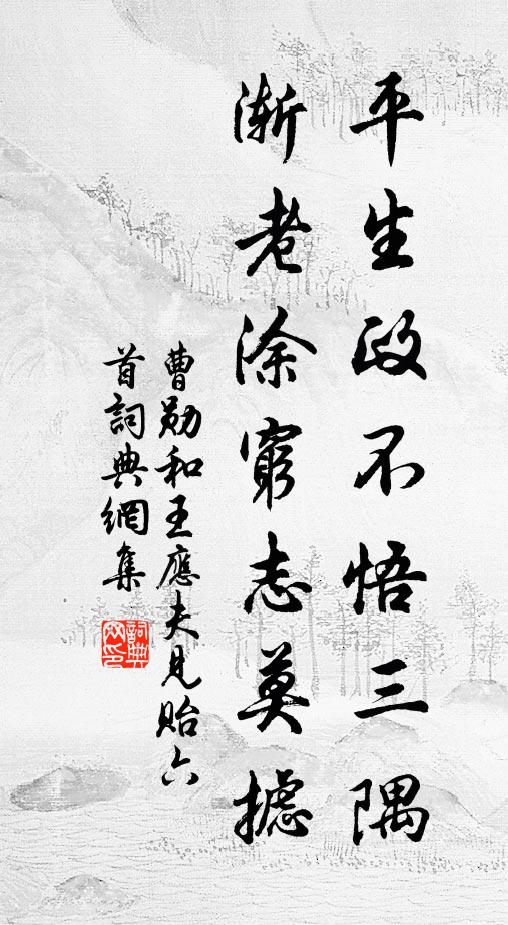 平生政不悟三隅
漸老涂窮志莫攄
曹勛和王應夫見貽六
首詞典網集
詞典
网印